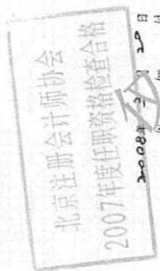 北京注册会计师协会
2007年度任职资格检查合格
2008年
日